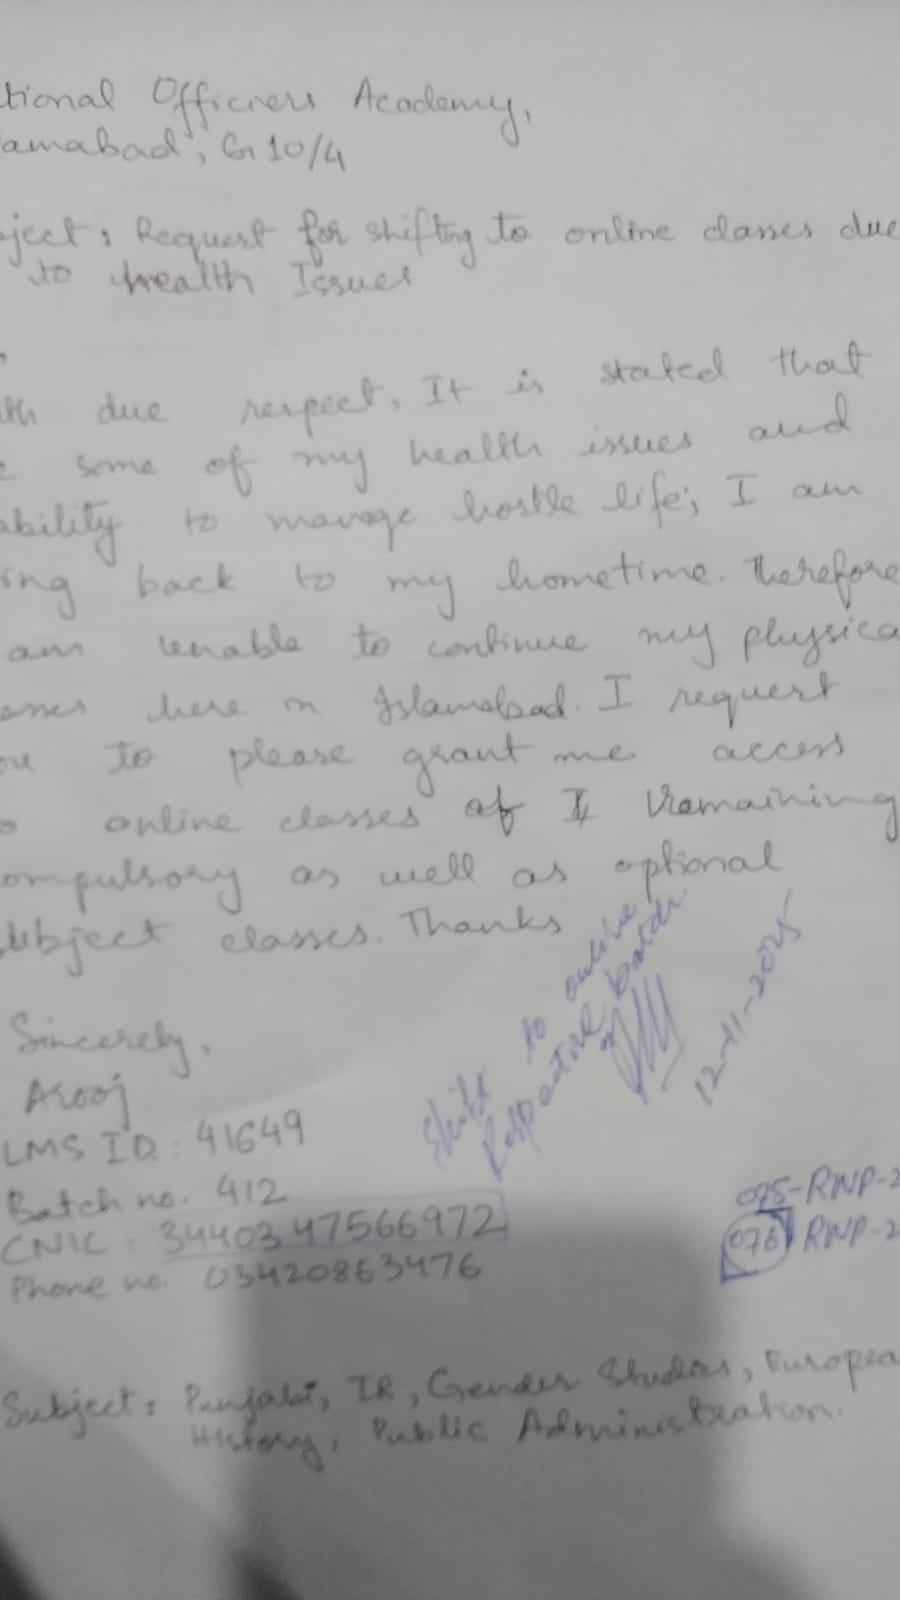 tional Officiers Academy,
lamabad, G 10/4
bject: Request for shifting to online classes due
to health Issues
ith due respect, It is stated that
some of my health issues and
ability to manage hostle life; I am
ing back to my hometime. Therefore
am unable to continue my physica
asses here in Islamabad. I request
ou to please grant me access
o online classes of remaining
ompulsory as well as optional
ubject classes. Thanks
Sincerely,
Arooj
LMS ID: 41649
Batch no. 412
CNIC: 3440347566972
Phone no. 03420863476
Shift to online
Respective batch
12-11-2025
075-RWP-2
076 RWP-2
Subject: Punjabi, IR, Gender Studies, Europea
History, Public Administration.